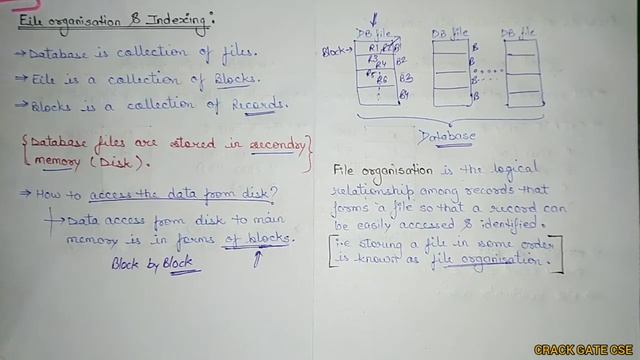 File organisation & Indexing:
→ Database is collection of files.
→ File is a collection of Blocks.
→ Blocks is a collection of Records.
{Database files are stored in secondry
memory (Disk).}
→ How to access the data from disk?
→ Data access from disk to main
memory is in forms of blocks.
Block by Block
DB file DB file DB file
Block→ R1 R2 B1
R3 R4 B2
R5 R6 B3
B4
B
B
B
B
Database
File organisation is the logical
relationship among records that
forms a file so that a record can
be easily accessed & identified.
[i.e storing a file in some order
is known as file organisation.]
CRACK GATE CSE